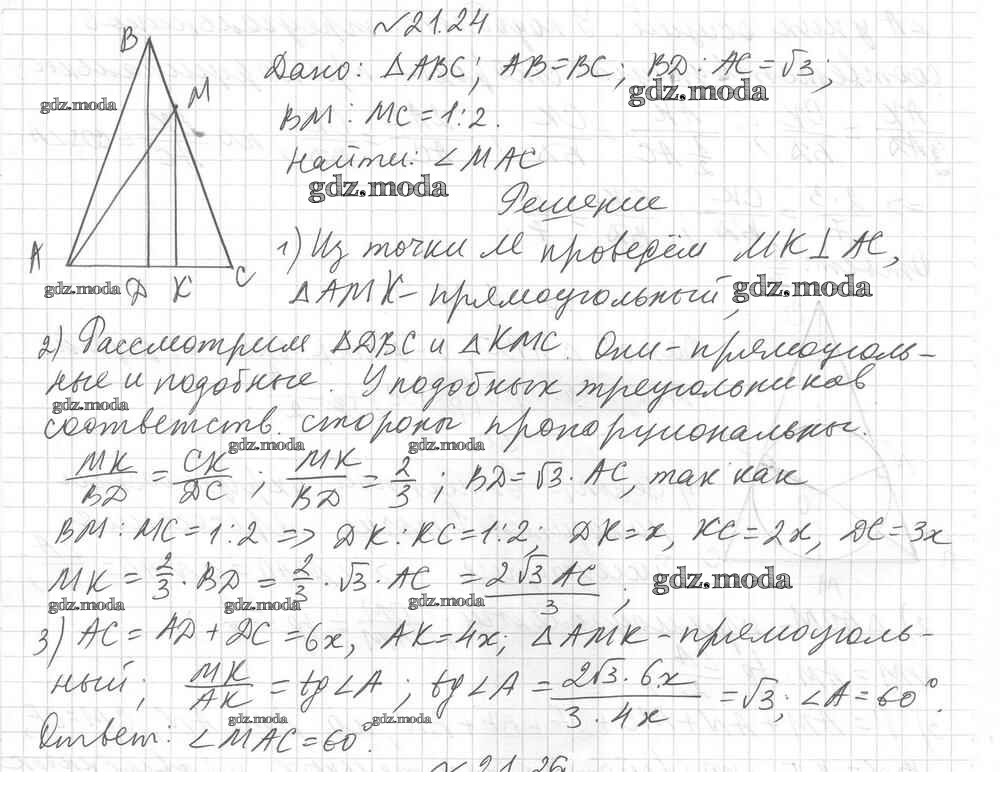 №21.24
Дано: △ABC; AB=BC; BD:AC=√3;
BM:MC=1:2.
Найти: ∠MAC
Решение
1) Из точки M проведём MK⊥AC,
△AMK-прямоугольный,
2) Рассмотрим △DBC и △KMC. Они-прямоуголь-
ные и подобные. У подобных треугольников
соответств. стороны пропорциональны.
MK/BD = CK/DC; MK/BD = 2/3; BD=√3·AC, так как
BM:MC=1:2 => DK:KC=1:2; DK=x, KC=2x, DC=3x
MK = 2/3·BD = 2/3·√3·AC = 2√3 AC/3;
3) AC=AD+DC=6x, AK=4x; △AMK-прямоуголь-
ный; MK/AK = tg∠A; tg∠A = 2√3·6x/3·4x = √3; ∠A=60°.
Ответ: ∠MAC=60°.
№21.26
B
M
A
D
K
C
gdz.moda
gdz.moda
gdz.moda
gdz.moda
gdz.moda
gdz.moda
gdz.moda
gdz.moda
gdz.moda
gdz.moda
gdz.moda
gdz.moda
gdz.moda
gdz.moda